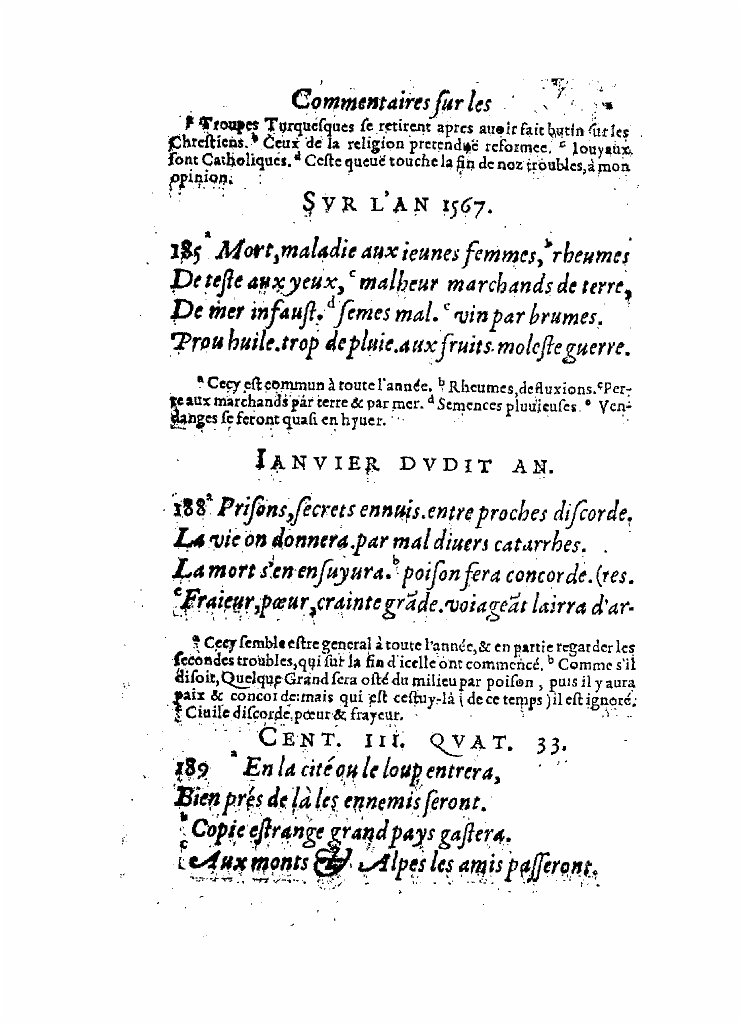 Commentaires ſur les
ᵃ Troupes Turqueſques ſe retirent apres auoir fait butin ſur les
Chreſtiens. ᵇ Ceux de la religion pretenduë reformee. ᶜ Iouyaux
ſont Catholiques. ᵈ Ceſte queuë touche la fin de noz troubles, à mon
opinion.
SVR L'AN 1567.
185 ᵃ Mort, maladie aux ieunes femmes, ᵇ rheumes
De teſte aux yeux, ᶜ malheur marchands de terre,
De mer infauſt. ᵈ ſemes mal. ᵉ vin par brumes.
Prou huile. trop de pluie. aux fruits moleſte guerre.
ᵃ Cecy eſt commun à toute l'année. ᵇ Rheumes, defluxions. ᶜ Per-
te aux marchands par terre & par mer. ᵈ Semences pluuieuſes. ᵉ Ven-
danges ſe feront quaſi en hyuer.
IANVIER DVDIT AN.
188 ᵃ Priſons, ſecrets ennuis. entre proches diſcorde.
La vie on donnera. par mal diuers catarrhes.
La mort s'en enſuyura. ᵇ poiſon fera concorde. (res.
ᶜ Fraieur, pœur, crainte grāde. voiageāt lairra d'ar-
ᵃ Cecy ſemble eſtre general à toute l'année, & en partie regarder les
ſecondes troubles, qui ſur la fin d'icelle ont commencé. ᵇ Comme s'il
diſoit, Quelque Grand ſera oſté du milieu par poiſon, puis il y aura
paix & concorde: mais qui eſt ceſtuy-là (de ce temps) il eſt ignoré.
ᶜ Ciuile diſcorde, pœur & frayeur.
CENT. III. QVAT. 33.
189 ᵃ En la cité ou le loup entrera,
Bien prés de là les ennemis ſeront.
ᵇ Copie eſtrange grand pays gaſtera.
ᶜ Aux monts & Alpes les amis paſſeront.